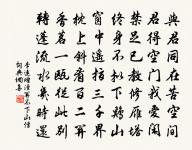 與君同在苦空間
君得空門我愛閑
禁足已教修雁塔
終身不擬下雞山
窗中遙指三千界
枕上斜看百二關
香茗一甌從此別
轉蓬流水幾時還
李遠贈潼關不下山僧
詞典網集